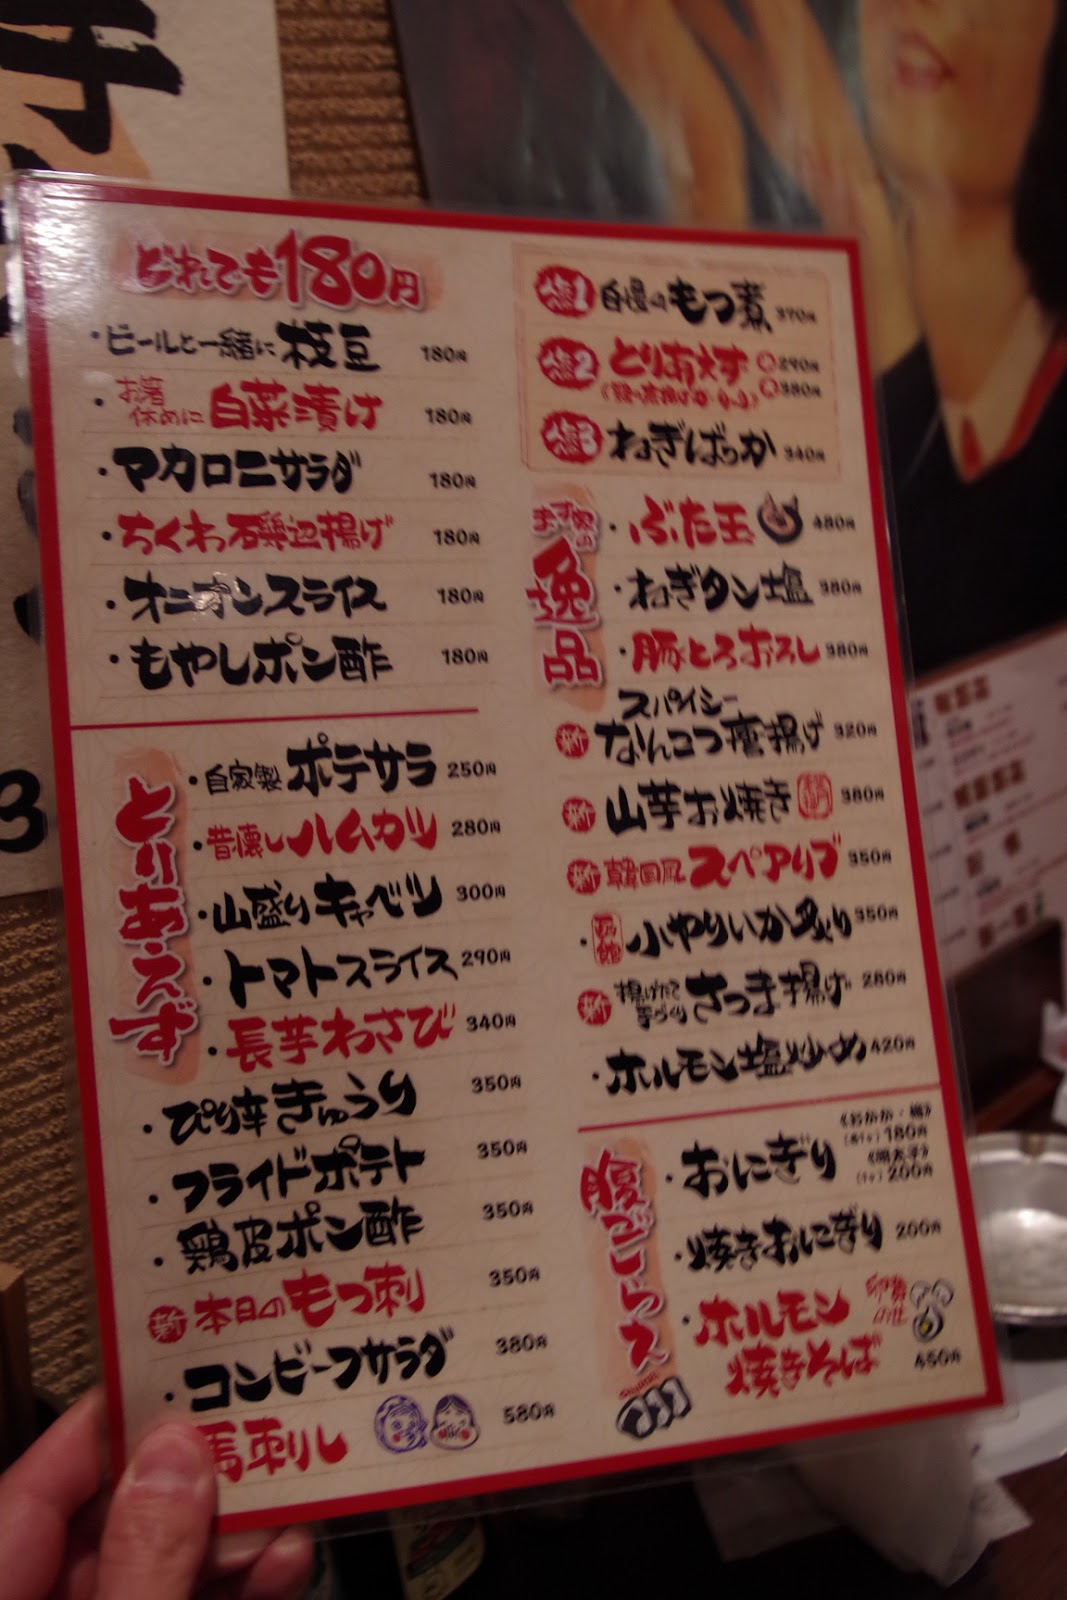 どれでも180円
・ビールと一緒に 枝豆 180円
・お箸休めに 白菜漬け 180円
・マカロニサラダ 180円
・ちくわ磯辺揚げ 180円
・オニオンスライス 180円
・もやしポン酢 180円
とりあえず
・自家製 ポテサラ 250円
・昔懐し ハムカツ 280円
・山盛り キャベツ 300円
・トマトスライス 290円
・長芋わさび 340円
・ぴり辛きゅうり 350円
・フライドポテト 350円
・鶏皮ポン酢 350円
新 本日のもつ刺 350円
・コンビーフサラダ 380円
馬刺し 580円
1 自慢の もつ煮 370円
2 とりあえず 290円
380円
3 ねぎばっか 340円
まず這の 逸品
・ぶた玉 480円
・ねぎタン塩 380円
・豚とろおろし 380円
新 スパイシー なんコツ唐揚げ 320円
新 山芋お焼き 380円
新 韓国風 スペアリブ 350円
・函館 小やりいか炙り 350円
新 揚げたて 手づくり さつま揚げ 280円
・ホルモン塩炒め 420円
腹ごしらえ
・おにぎり 《おかか・梅》 180円
《明太子》 200円
・焼きおにぎり 200円
・ホルモン焼きそば 450円
3